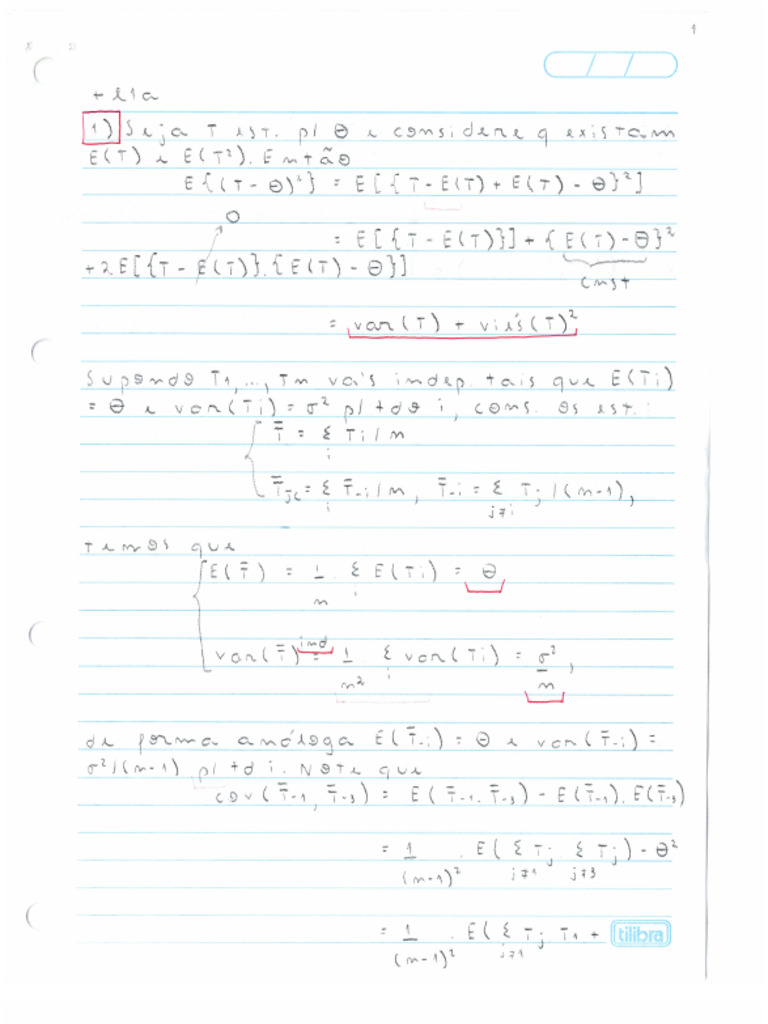 1
+ l1a
1) Seja T est. p/ θ e considere q existam
E(T) e E(T²). Então
E{(T - θ)²} = E[{T - E(T) + E(T) - θ}²]
0
= E[{T - E(T)}] + {E(T) - θ}²
+ 2E[{T - E(T)}.{E(T) - θ}]
cnst
= var(T) + viés(T)²
Supondo T1, ..., Tn va's indep. tais que E(Ti)
= θ e var(Ti) = σ² p/ tdo i, cons. os est.:
T̄ = Σ Ti / n
i
T̄JC = Σ T̄-i / n, T̄-i = Σ Tj / (n-1),
i j≠i
temos que
E(T̄) = 1 Σ E(Ti) = θ
n i
ind
var(T̄) = 1 Σ var(Ti) = σ²,
n² i n
de forma análoga E(T̄-i) = θ e var(T̄-i) =
σ²/(n-1) p/ td i. Note que
cov(T̄-1, T̄-3) = E(T̄-1. T̄-3) - E(T̄-1). E(T̄-3)
= 1 . E(Σ Tj Σ Tj) - θ²
(n-1)² j≠1 j≠3
= 1 . E(Σ Tj T1 + tilibra
(n-1)² j≠1